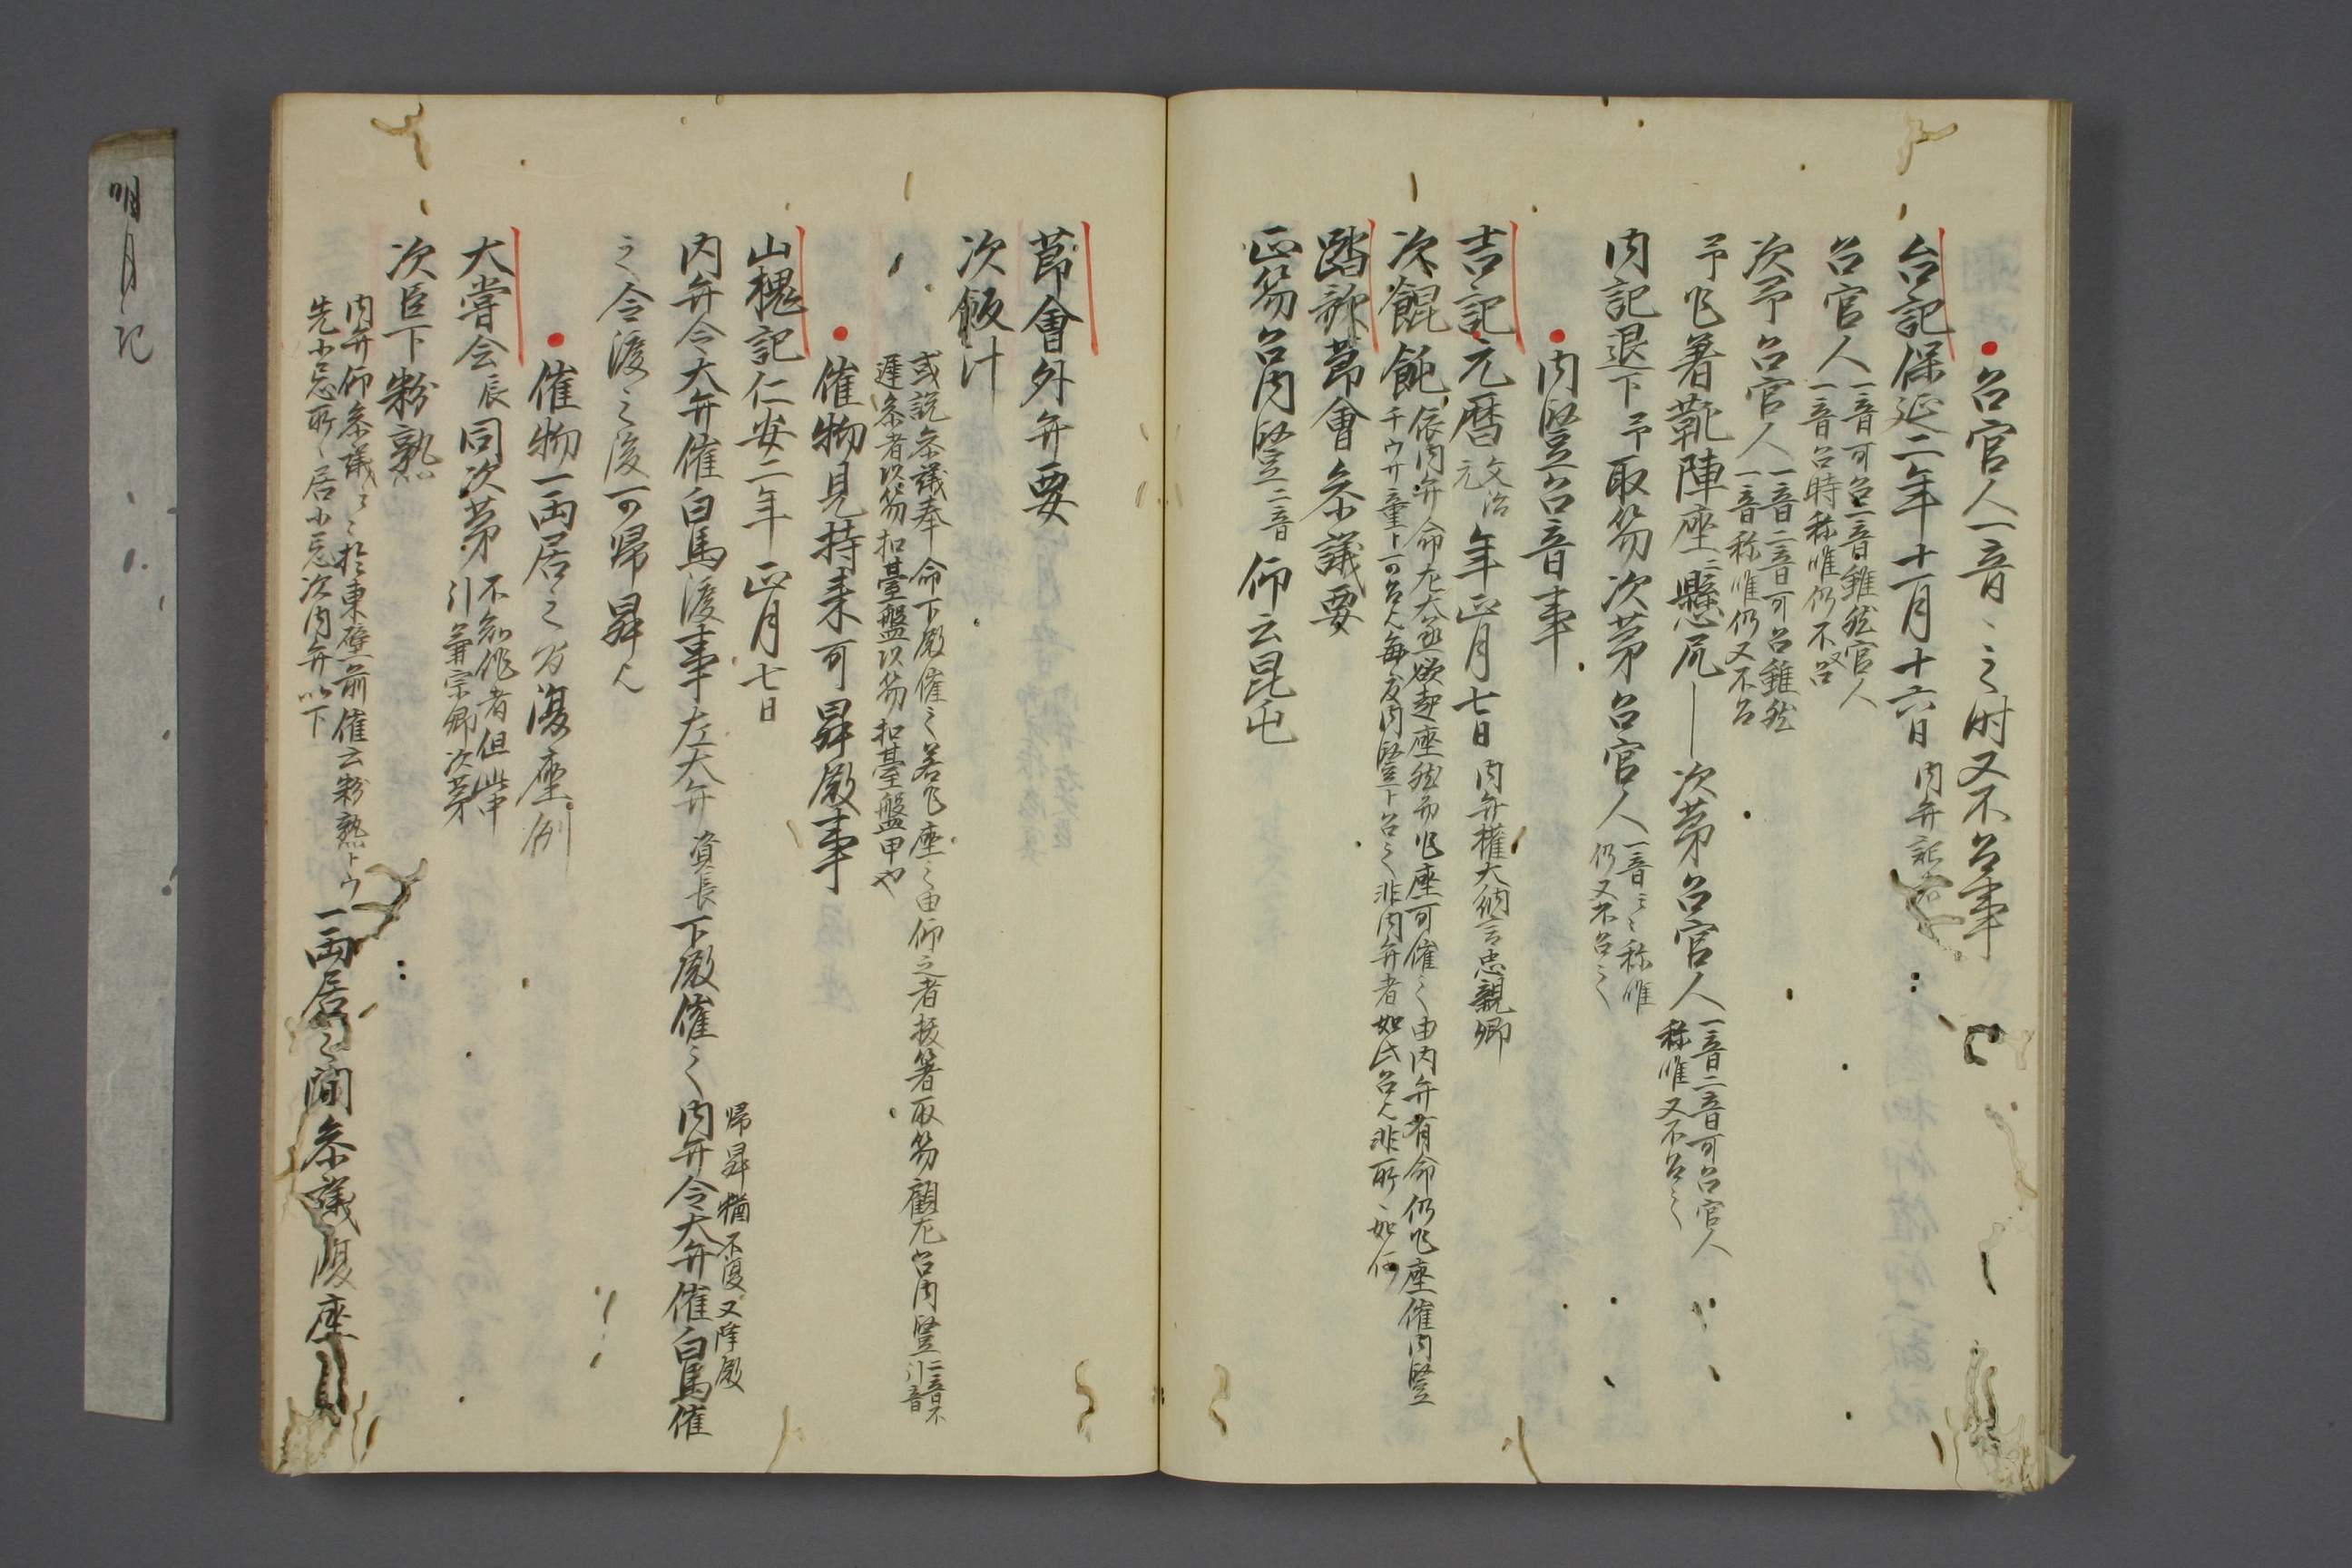 召官人一音〻之时又不召事
台記保延二年十一月十六日 内弁
召官人一音可召二音雖然官人
一音召時称唯仍不又召
次予召官人一音二音可召雖然
一音称唯仍又不召
予乍著靴陣座ニ懸尻― 次苐召官人一音二音可召官人
称唯又不召之
内記退下予取笏次苐召官人一音〻〻称唯
仍又不召之
内豎召音事
吉記元暦文治元年正月七日 内弁權大納言忠親卿
次餛飩依内弁命左大丞欲起座然而乍座可催之由内弁有命仍乍座催内豎
踏謌莭會条議要
正笏召内豎二音 仰云昆屯
莭會外弁要
次飯汁
或説参議奉命下殿催之若乍座之由仰之者抜箸取笏顧左召内豎二音不引音
遅参者以笏扣臺盤以笏扣臺盤甲也
催物見持来可昇殿事
山槐記仁安二年正月七日
内弁令大弁催白馬渡事左大弁資長下殿催之内弁令大弁催白馬催
帰昇猶不渡又降殿
之令渡之後可帰昇人
催物一両居之方復座例
大嘗会辰同次苐不知作者但此中
引兼宗卿次苐
次臣下粉熟
内弁仰参議〻〻於東壁前催云粉熟トウ一両居之間参議復座
先小忌所〻居小忌次内弁以下
明月記